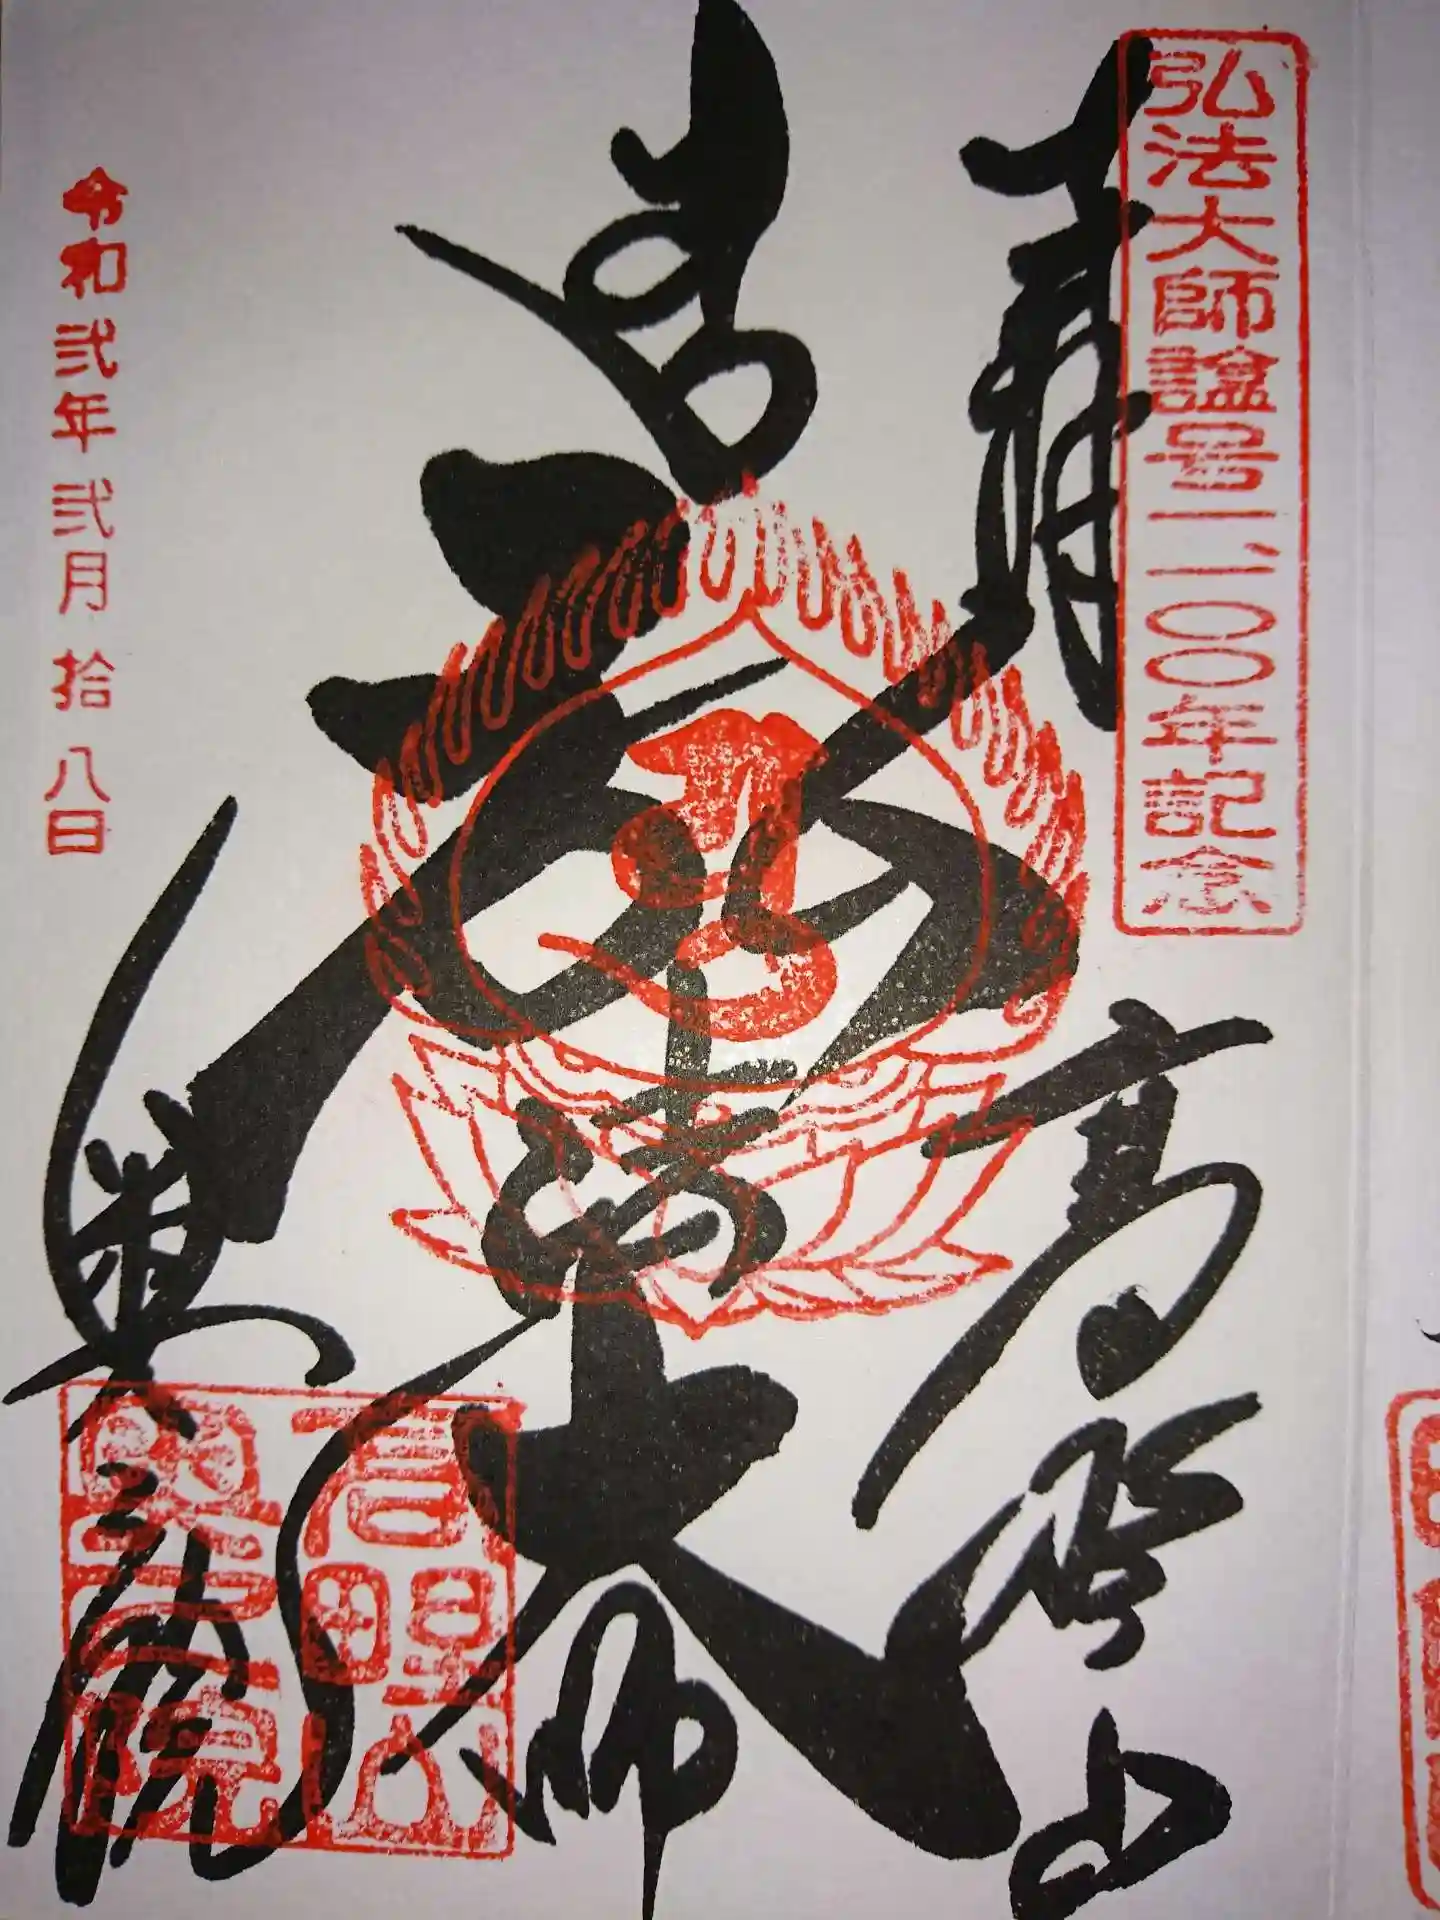 弘法大師諡号一、一〇〇年記念
奉拝
高野山
弘法大師
奥之院
令和弐年弐月拾八日
高野山
奥之院